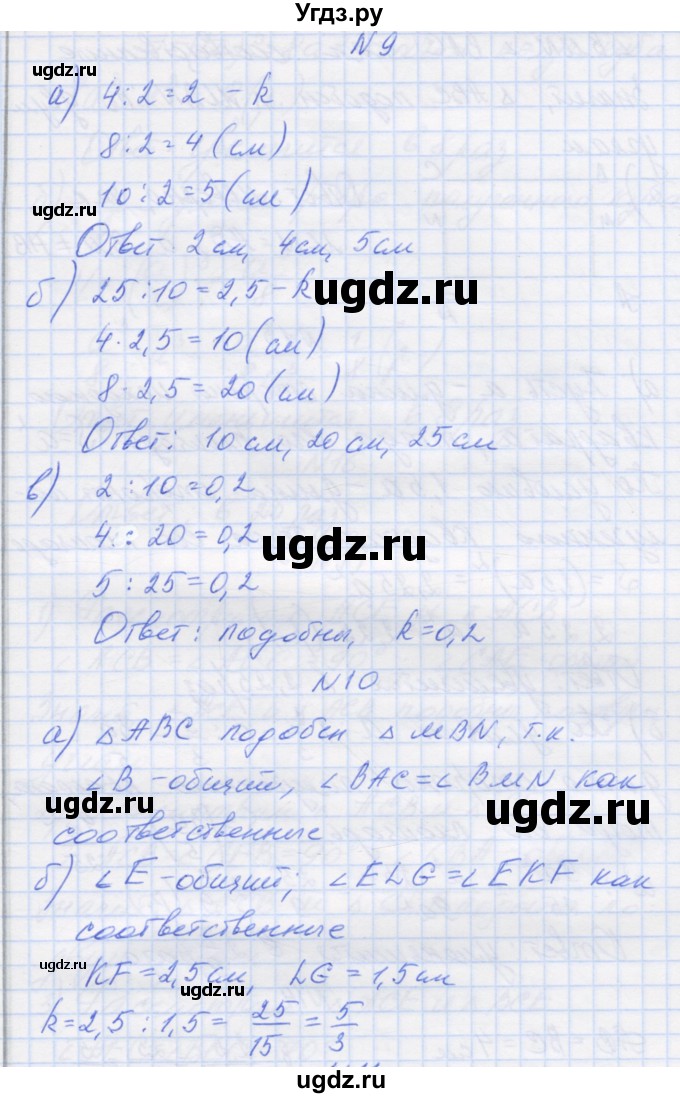 Угдз.ру
N9
ugdz.ru
а) 4:2=2 - k
8:2=4 (см)
10:2=5 (см)
ugdz.ru
Ответ: 2 см, 4 см, 5 см
б) 25:10=2,5 - k
ugdz.ru
4·2,5=10 (см)
8·2,5=20 (см)
Ответ: 10 см, 20 см, 25 см
в) 2:10=0,2
4:20=0,2
ugdz.ru
5:25=0,2
Ответ: подобны, k=0,2
N10
а) △ABC подобен △MBN, т.к.
∠B - общий, ∠BAC=∠BMN как
ugdz.ru
ugdz.ru
соответственные
б) ∠E - общий; ∠ELG=∠EKF как
соответственные
ugdz.ru
KF=2,5 см, LG=1,5 см
ugdz.ru
k=2,5:1,5= 25/15 = 5/3
ugdz.ru